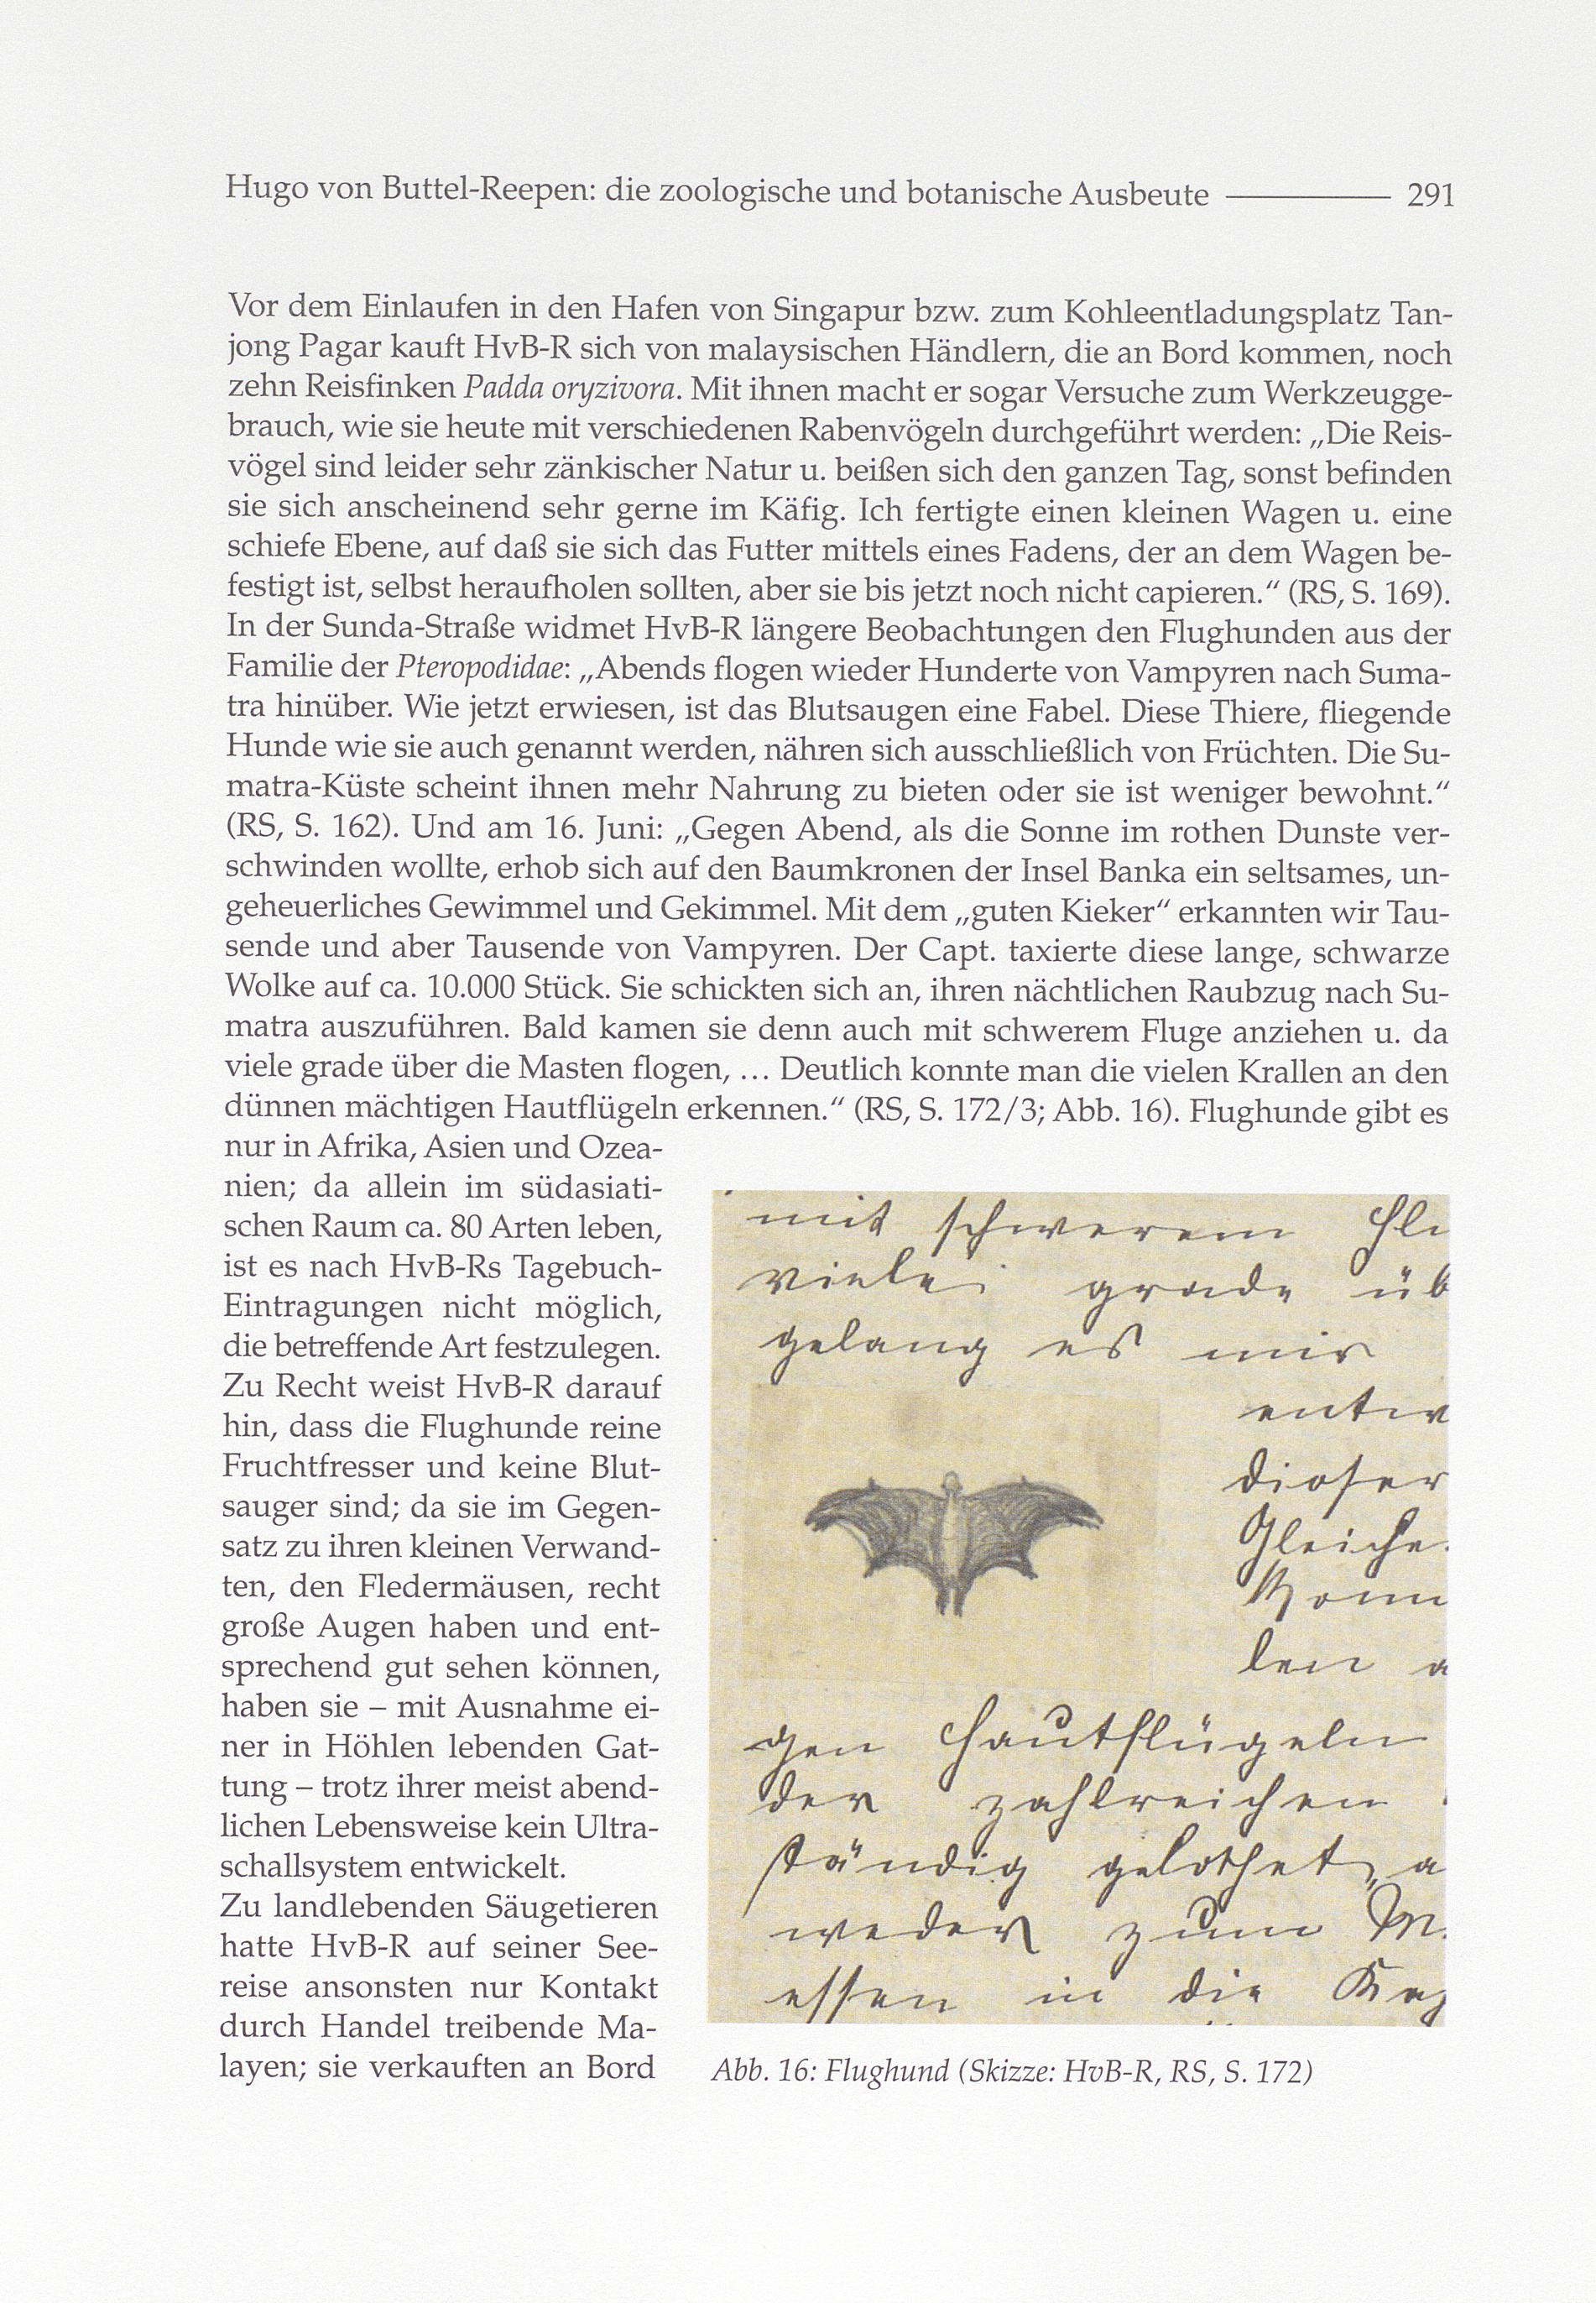 Hugo von Buttel-Reepen: die zoologische und botanische Ausbeute 291
Vor dem Einlaufen in den Hafen von Singapur bzw. zum Kohleentladungsplatz Tan-
jong Pagar kauft HvB-R sich von malaysischen Händlern, die an Bord kommen, noch
zehn Reisfinken Padda oryzivora. Mit ihnen macht er sogar Versuche zum Werkzeugge-
brauch, wie sie heute mit verschiedenen Rabenvögeln durchgeführt werden: „Die Reis-
vögel sind leider sehr zänkischer Natur u. beißen sich den ganzen Tag, sonst befinden
sie sich anscheinend sehr gerne im Käfig. Ich fertigte einen kleinen Wagen u. eine
schiefe Ebene, auf daß sie sich das Futter mittels eines Fadens, der an dem Wagen be-
festigt ist, selbst heraufholen sollten, aber sie bis jetzt noch nicht capieren.“ (RS, S. 169).
In der Sunda-Straße widmet HvB-R längere Beobachtungen den Flughunden aus der
Familie der Pteropodidae: „Abends flogen wieder Hunderte von Vampyren nach Suma-
tra hinüber. Wie jetzt erwiesen, ist das Blutsaugen eine Fabel. Diese Thiere, fliegende
Hunde wie sie auch genannt werden, nähren sich ausschließlich von Früchten. Die Su-
matra-Küste scheint ihnen mehr Nahrung zu bieten oder sie ist weniger bewohnt.“
(RS, S. 162). Und am 16. Juni: „Gegen Abend, als die Sonne im rothen Dunste ver-
schwinden wollte, erhob sich auf den Baumkronen der Insel Banka ein seltsames, un-
geheuerliches Gewimmel und Gekimmel. Mit dem „guten Kieker“ erkannten wir Tau-
sende und aber Tausende von Vampyren. Der Capt. taxierte diese lange, schwarze
Wolke auf ca. 10.000 Stück. Sie schickten sich an, ihren nächtlichen Raubzug nach Su-
matra auszuführen. Bald kamen sie denn auch mit schwerem Fluge anziehen u. da
viele grade über die Masten flogen, … Deutlich konnte man die vielen Krallen an den
dünnen mächtigen Hautflügeln erkennen.“ (RS, S. 172/3; Abb. 16). Flughunde gibt es
nur in Afrika, Asien und Ozea-
nien; da allein im südasiati-
schen Raum ca. 80 Arten leben,
ist es nach HvB-Rs Tagebuch-
Eintragungen nicht möglich,
die betreffende Art festzulegen.
Zu Recht weist HvB-R darauf
hin, dass die Flughunde reine
Fruchtfresser und keine Blut-
sauger sind; da sie im Gegen-
satz zu ihren kleinen Verwand-
ten, den Fledermäusen, recht
große Augen haben und ent-
sprechend gut sehen können,
haben sie – mit Ausnahme ei-
ner in Höhlen lebenden Gat-
tung – trotz ihrer meist abend-
lichen Lebensweise kein Ultra-
schallsystem entwickelt.
Zu landlebenden Säugetieren
hatte HvB-R auf seiner See-
reise ansonsten nur Kontakt
durch Handel treibende Ma-
layen; sie verkauften an Bord
mit schwerem Flu
viele grade üb
gelang es mir
entw
dieser
Gleiche
Konn
len a
gen Hautflügeln
der zahlreichen
ständig gelothet, a
weder zum M
essen in die Kaj
Abb. 16: Flughund (Skizze: HvB-R, RS, S. 172)